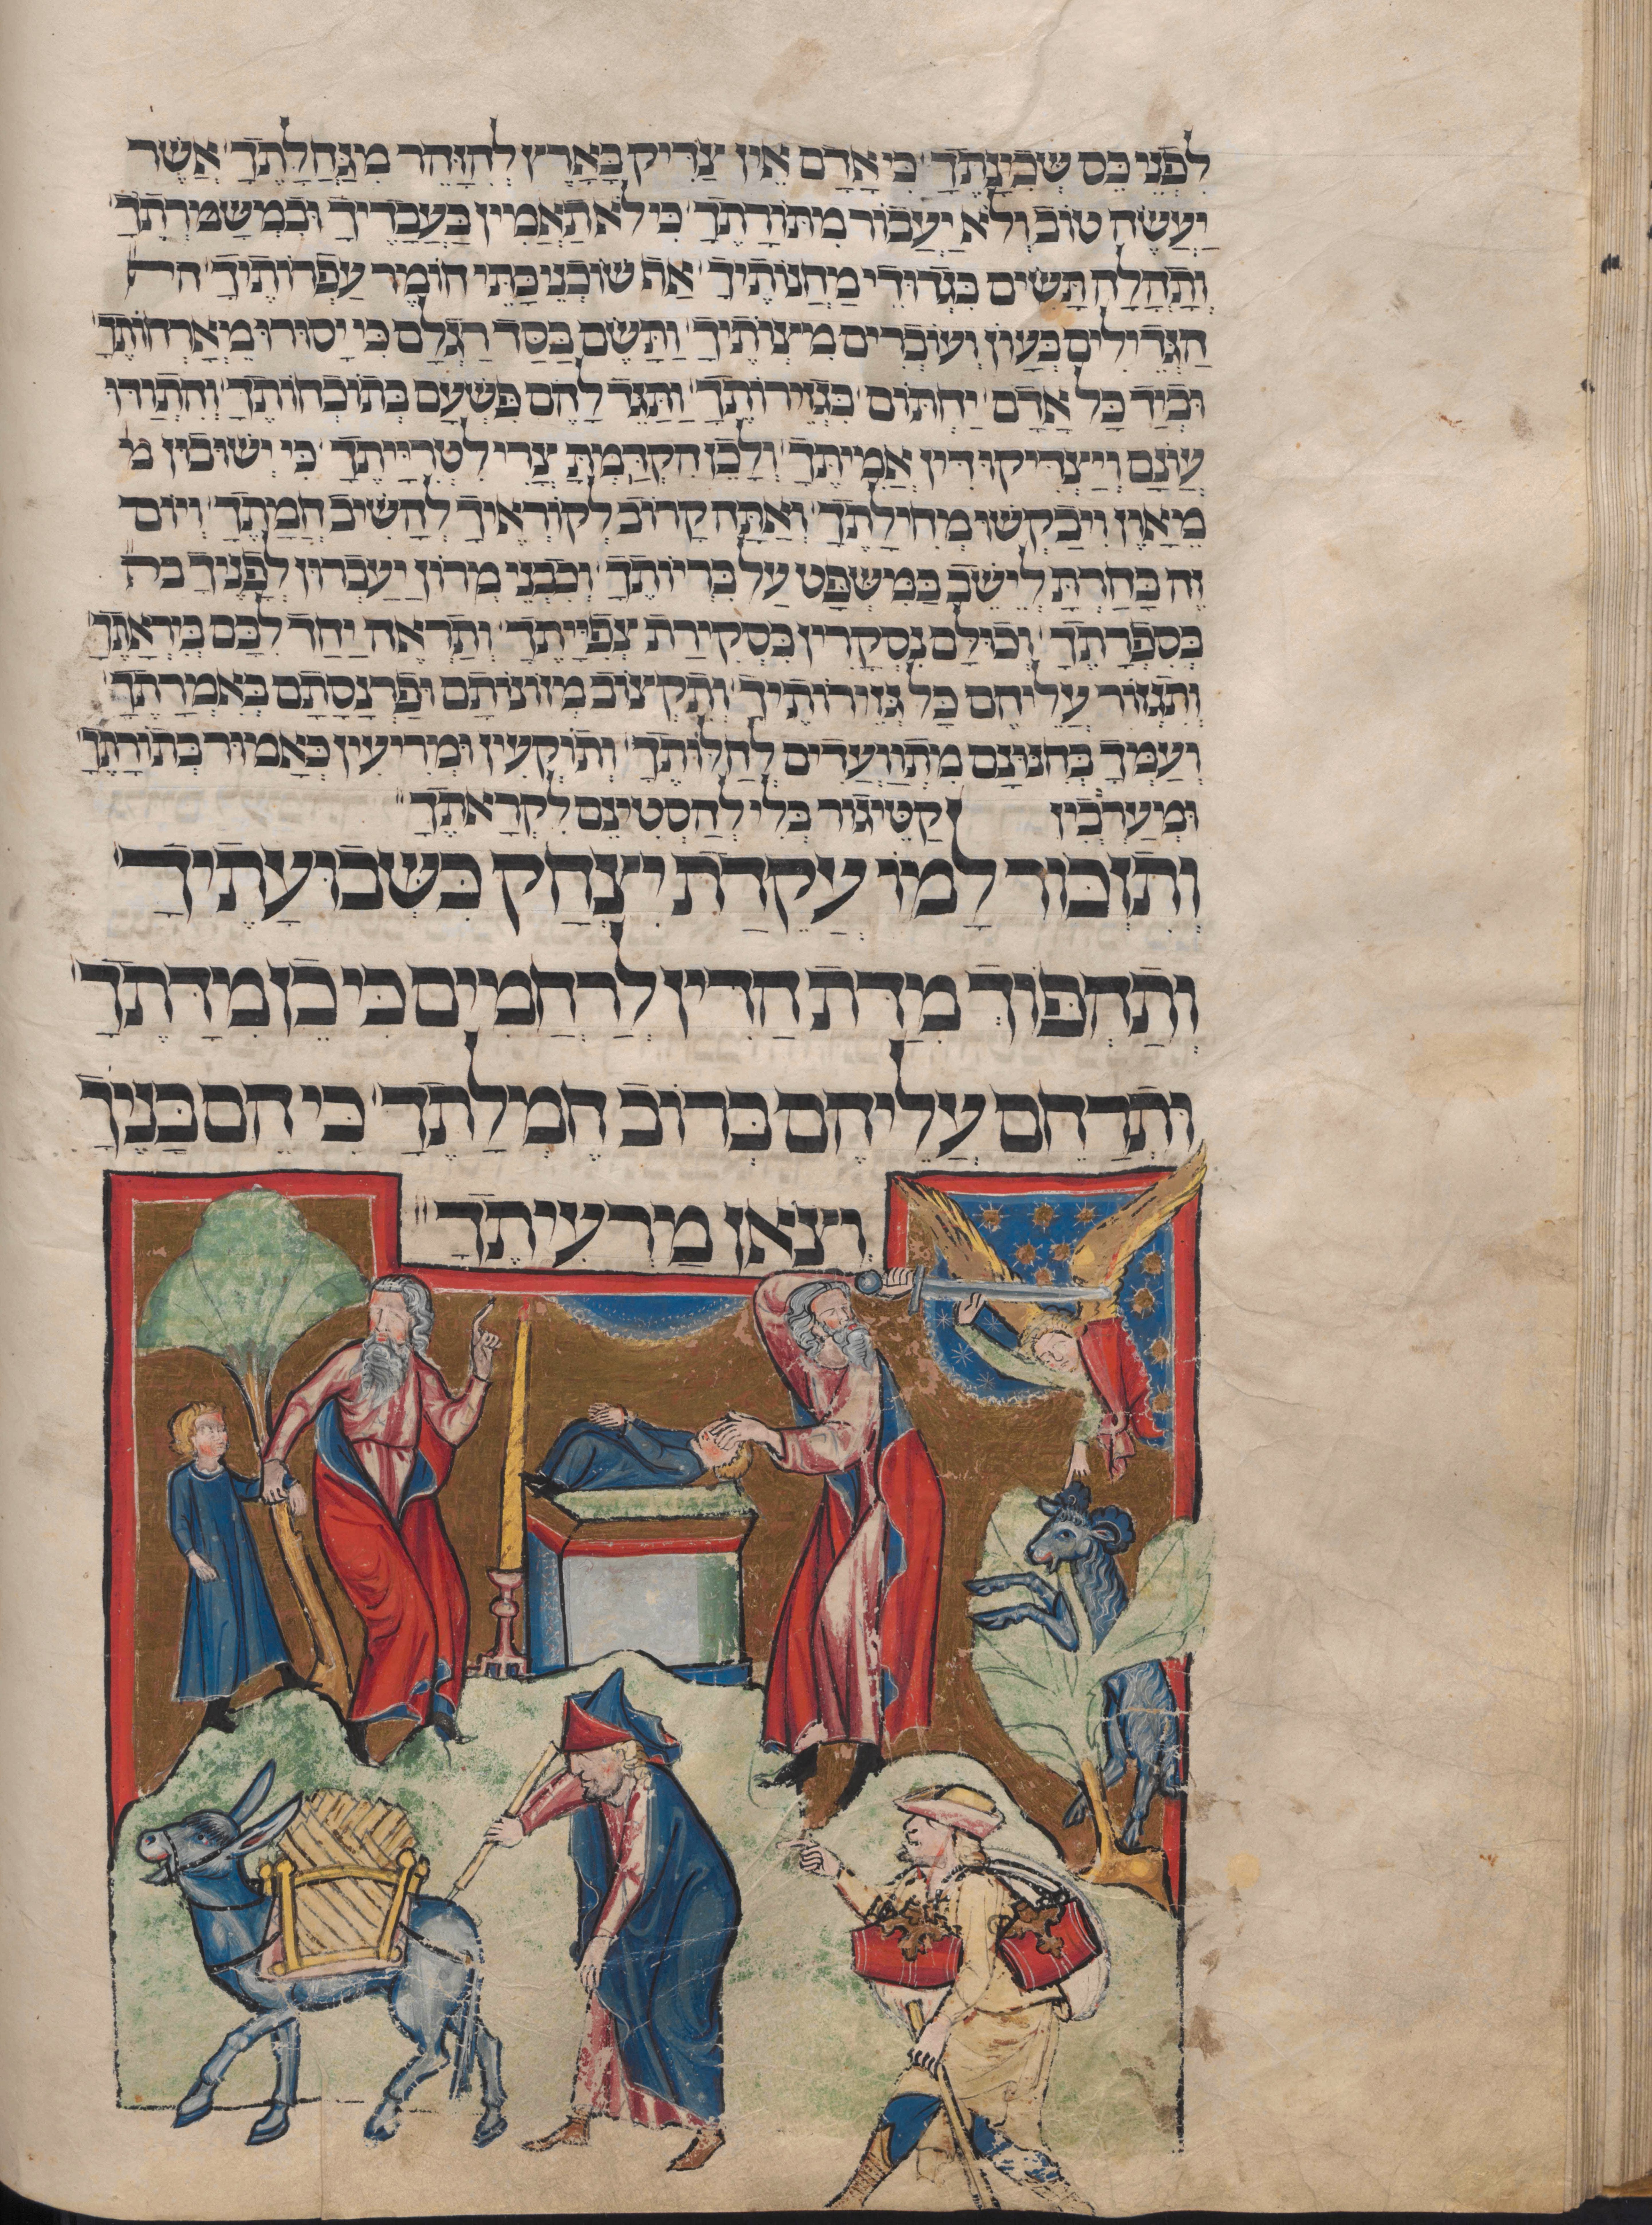 לִפְנֵי כֵס שְׁכִינָתֶךָ כִּי אָדָם אֵין צַדִּיק בָּאָרֶץ לְהִזָּהֵר מִגַּחַלָּתֶךָ אֲשֶׁר
יַעֲשֶׂה טוֹב וְלֹא יַעֲבוֹר מִתּוֹרָתֶךָ כִּי לֹא תַאֲמִין בַּעֲבָדֶיךָ וּבְמִשְׁמַרְתֶּךָ
וְתָהֳלָה תָּשִׂים בִּגְדוּדֵי מַחֲנוֹתֶיךָ אַף שׁוֹכְנֵי בָּתֵּי חוֹמֶר עַפְרוֹתֶיךָ
הַגְּדֵילִים בְּעָוֹן וְעוֹבְרִים מִצְוֹתֶיךָ וַתָּשֶׂם בַּסַּד רַגְלָם כִּי יָסוּרוּ מֵאָרְחוֹתֶךָ
וּבְיַד כָּל אָדָם יַחְתּוֹם בִּגְזֵירוֹתֶךָ וַתַּגֵּד לָהֶם פִּשְׁעָם בְּתוֹכְחוֹתֶךָ וְהִתְוַדּוּ
עֲוֹנָם וְיַצְדִּיקוּ דִּין אֲמִיתֶּךָ וְלָכֵן הִקְדַּמְתָּ צֳרִי לִטְרִיָּיתֶךָ כִּי יְשׁוּבוּן מ
מֵאָוֶן וִיבַקְשׁוּ מְחִילָתֶךָ וְאַתָּה קָרוֹב לְקוֹרְאֶיךָ לְהָשִׁיב חֲמָתֶךָ וְיוֹם
זֶה בָּחַרְתָּ לֵישֵׁב בַּמִּשְׁפָּט עַל בִּרְיוֹתֶךָ וְכִבְנֵי מְרוֹן יַעַבְרוּן לְפָנֶיךָ
בְּסִפְרָתֶךָ וְכוּלָּם נִסְקָרִין בִּסְקִירַת צְפִיָּיתֶךָ וְתִרְאֶה יַחַד לִבָּם בִּירְאָתֶךָ
וְתִגְזוֹר עֲלֵיהֶם כָּל גְּזֵירוֹתֶיךָ וְתִקְצוֹב מְזוֹנוֹתָם וּפַרְנָסָתָם בְּאִמְרָתֶךָ
וְעַמְּךָ בְּחִנּוּנָם מִתְוַועֲדִים לְחַלּוֹתֶךָ וְתוֹקְעִין וּמְרִיעִין כְּאָמוּר בְּתוֹרָתֶךָ
וּמְעַרְבְּבִין קַטֵּיגוֹר בְּלִי לְהַסְטִינָם לִקְרָאתֶךָ
וְתִזְכּוֹר לָמוֹ עֲקֵדַת יִצְחָק בִּשְׁבוּעָתֶיךָ
וְתַהְפּוֹךְ מִדַּת הַדִּין לְרַחֲמִים כִּי כֵן מִדָּתֶךָ
וּתְרַחֵם עֲלֵיהֶם בְּרוֹב חֶמְלָתֶךָ כִּי הֵם בָּנֶיךָ
וְצֹאן מַרְעִיתֶךָ